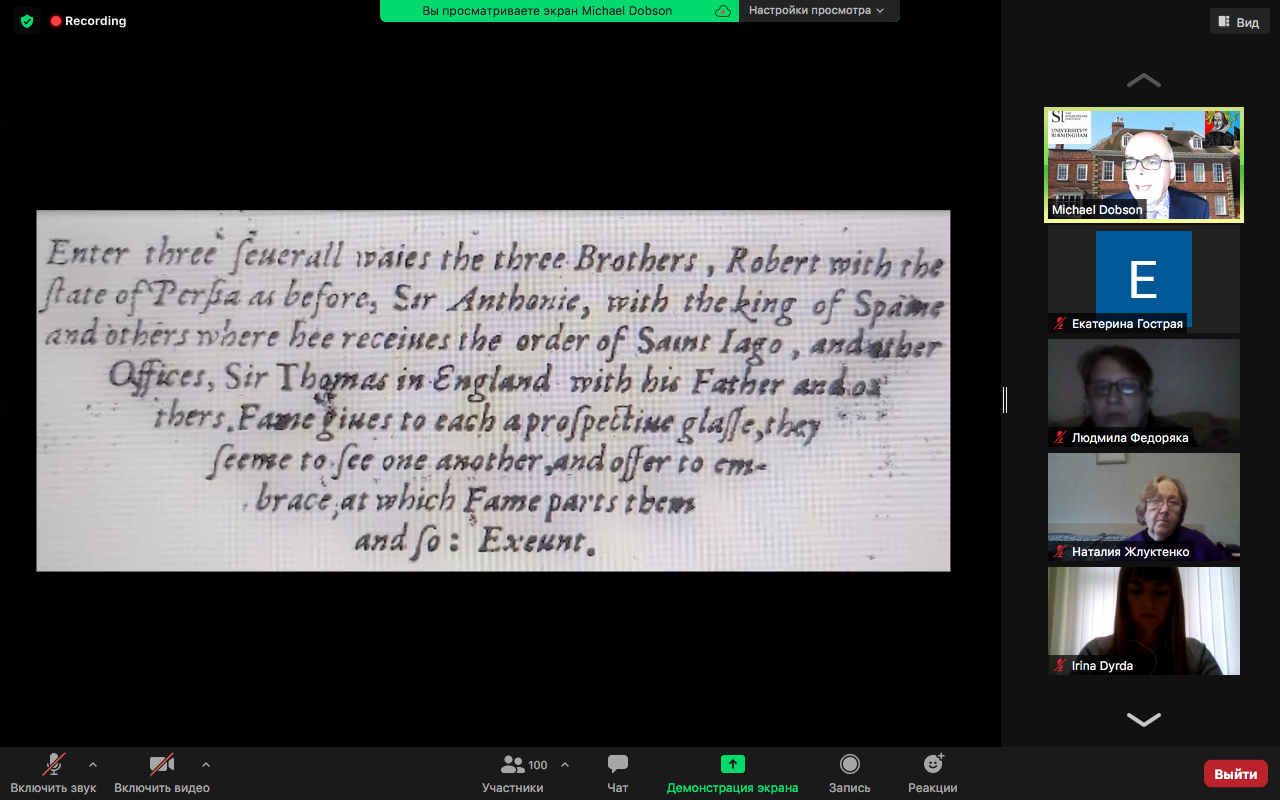 Recording
Вы просматриваете экран Michael Dobson
Настройки просмотра
Вид
Enter three ſeuerall waies the three Brothers, Robert with the
ſtate of Perſia as before, Sir Anthonie, with the king of Spaine
and others where hee receiues the order of Saint Iago, and other
Offices, Sir Thomas in England with his Father and o-
thers. Fame giues to each a proſpectiue glaſſe, they
ſeeme to ſee one another, and offer to em-
brace, at which Fame parts them
and ſo: Exeunt.
SI
THE SHAKESPEARE INSTITUTE
UNIVERSITY OF
BIRMINGHAM
Michael Dobson
E
Екатерина Гострая
Людмила Федоряка
Наталия Жлуктенко
Irina Dyrda
Включить звук
Включить видео
100
Участники
Чат
Демонстрация экрана
Запись
Реакции
Выйти